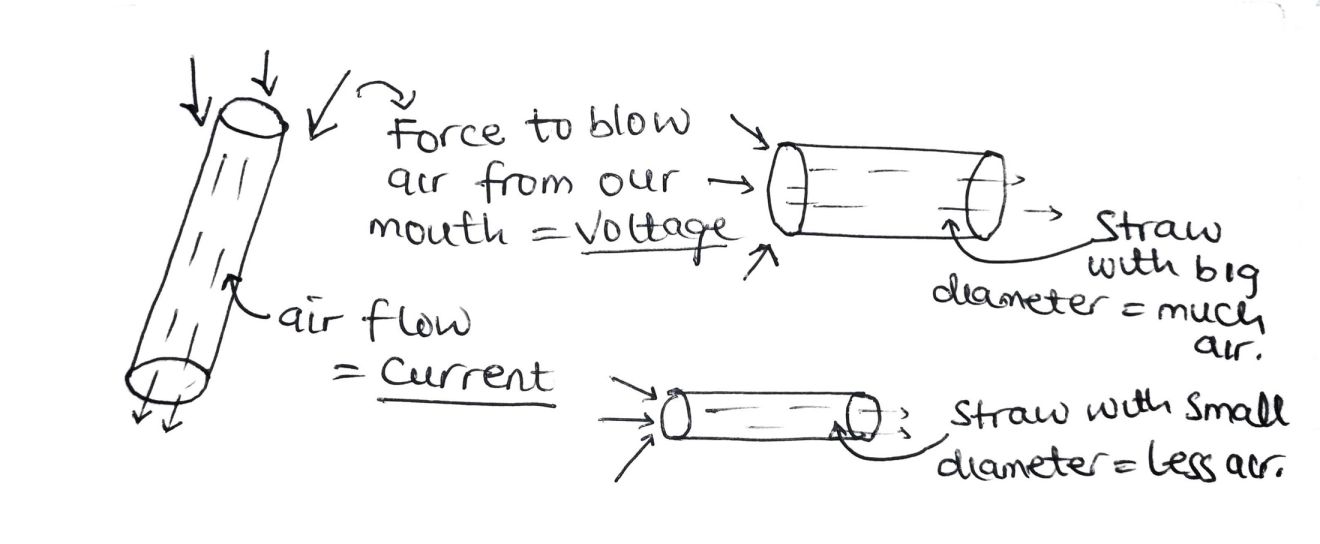 Force to blow
air from our
mouth = Voltage
air flow
= Current
Straw
with big
diameter = much
air.
Straw with Small
diameter = Less air.